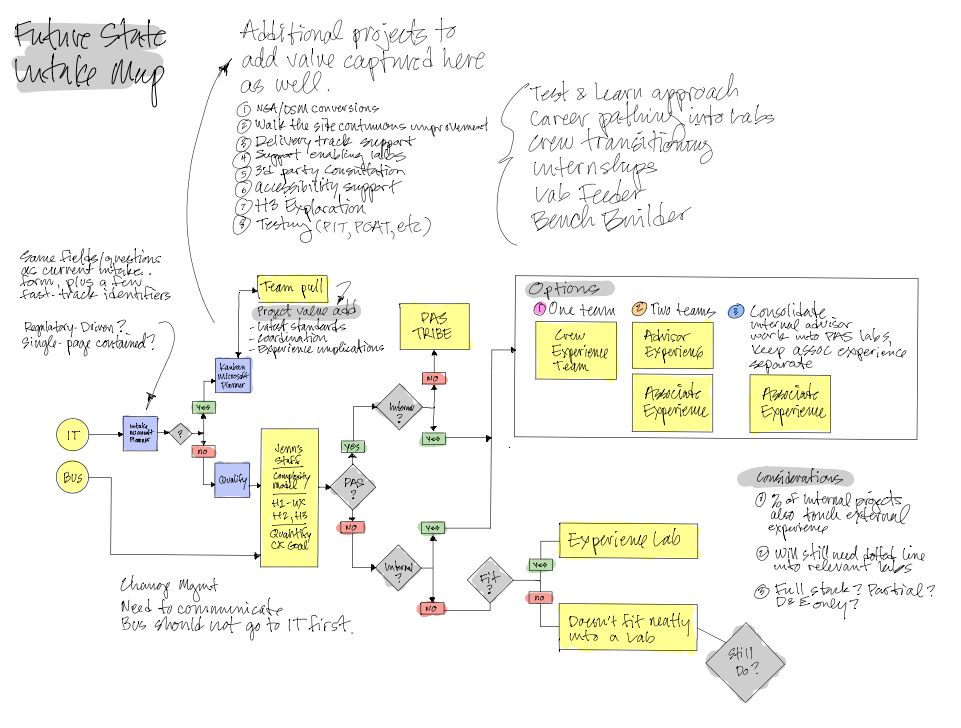 Future State
Intake Map
Additional projects to
add value captured here
as well.
① NSA/OSM conversions
② Walk the site continuous improvement
③ Delivery track support
④ Support enabling labs
⑤ 3rd party consultation
⑥ accessibility support
⑦ H3 Exploration
⑧ Testing (PIT, PCAT, etc)
Test & Learn approach
Career pathing into Labs
Crew transitioning
internships
Lab Feeder
Bench Builder
Same fields/questions
as current intake
form, plus a few
fast-track identifiers
Regulatory-Driven?
Single-page contained?
Team pull
Project value add
- Latest standards
- Coordination
- Experience implications
Kanban
Microsoft
Planner
YES
IT
Intake
Microsoft
Planner
?
NO
BUS
Qualify
Jenn's
Staff
Complexity
Model
H1-UX
H2, H3
Quantify
CX Goal
PAS
?
YES
NO
Internal
?
PAS
TRIBE
NO
YES
Internal
?
YES
NO
Fit
?
YES
NO
Experience Lab
Doesn't fit neatly
into a Lab
Still
Do?
Options
1 One team
Crew
Experience
Team
2 Two teams
Advisor
Experience
Associate
Experience
3 Consolidate
internal advisor
work into PAS labs,
keep assoc experience
separate
Associate
Experience
Considerations
① % of internal projects
also touch external
experience
② Will still need dotted line
into relevant labs
③ Full stack? Partial?
D&E only?
Change Mgmt
Need to communicate
Bus should not go to IT first.